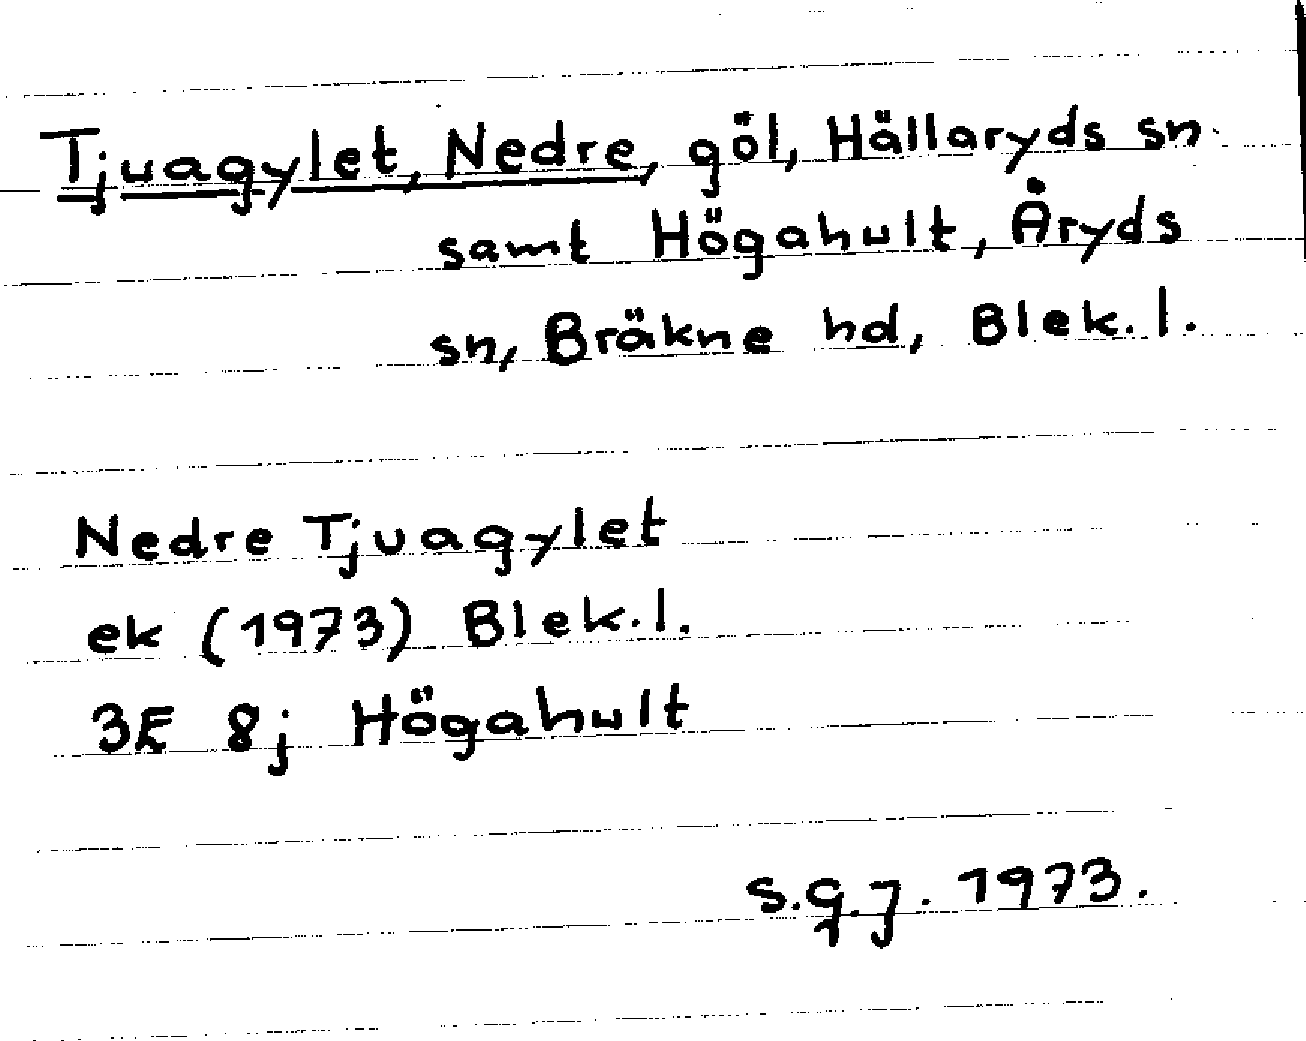 Tjuagylet, Nedre, göl, Hällaryds sn
samt Högahult, Åryds
sn, Bräkne hd, Blek. l.
Nedre Tjuagylet
ek (1973) Blek. l.
3E 8j Högahult
s.g.j. 1973.